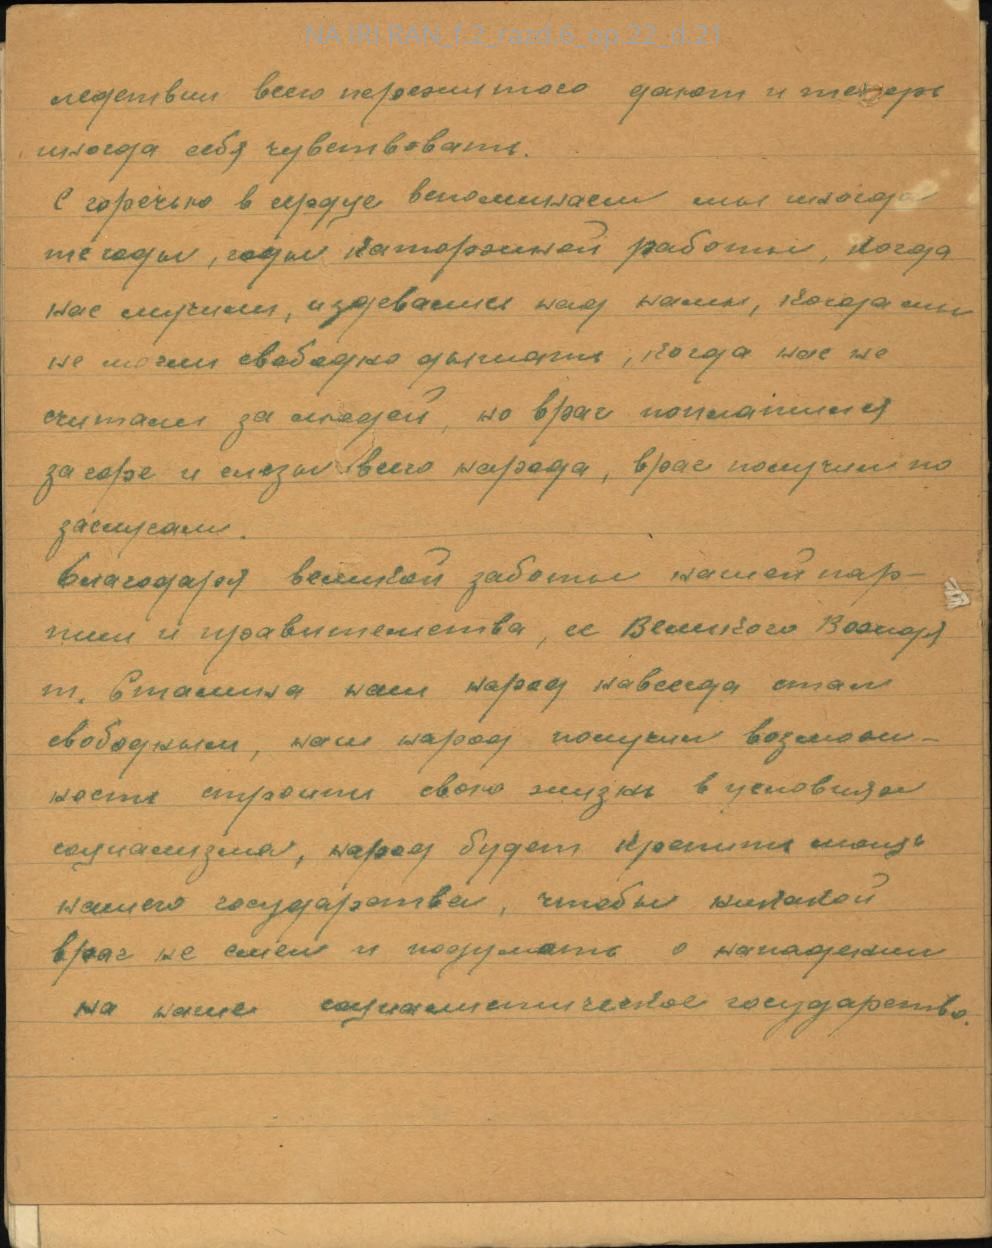 NA IRI RAN_f.2_razd.6_op.22_d.21
ледствия всего пережитого дают и теперь
иногда себя чувствовать.
С горечью в сердце вспоминаем мы иногда
те годы, годы каторжной работы, когда
нас мучили, издевались над нами, когда мы
не могли свободно дышать, когда нас не
считали за людей, но враг поплатился
за горе и слезы всего народа, враг получил по
заслугам.
Благодаря великой заботы нашей пар-
тии и правительства, ее Великого Вождя
т. Сталина наш народ навсегда стал
свободным, наш народ получил возмож-
ность строить свою жизнь в условиях
социализма, народ будет крепить мощь
нашего государства, чтобы никакой
враг не смел и подумать о нападении
на наше социалистическое государство.